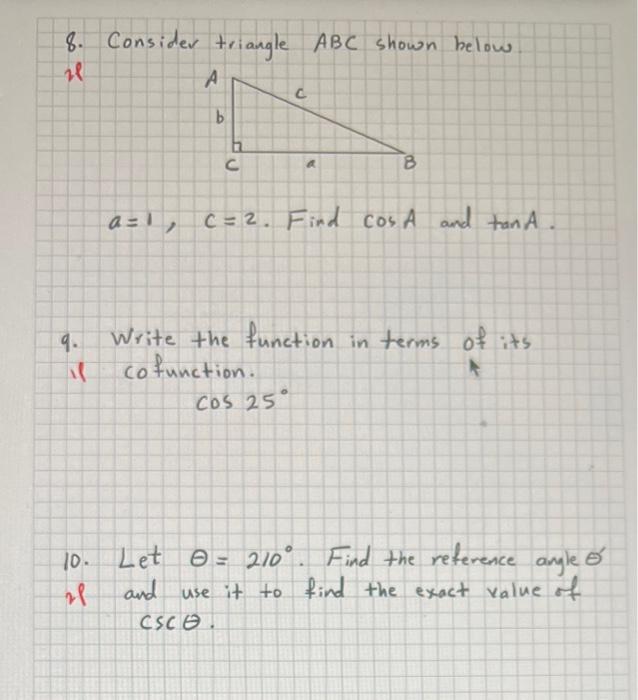 8. Consider triangle ABC shown below.
A
c
b
C
a
B
a=1, c=2. Find cos A and tan A.
9. Write the function in terms of its
cofunction.
cos 25°
10. Let θ = 210°. Find the reference angle θ'
and use it to find the exact value of
csc θ.